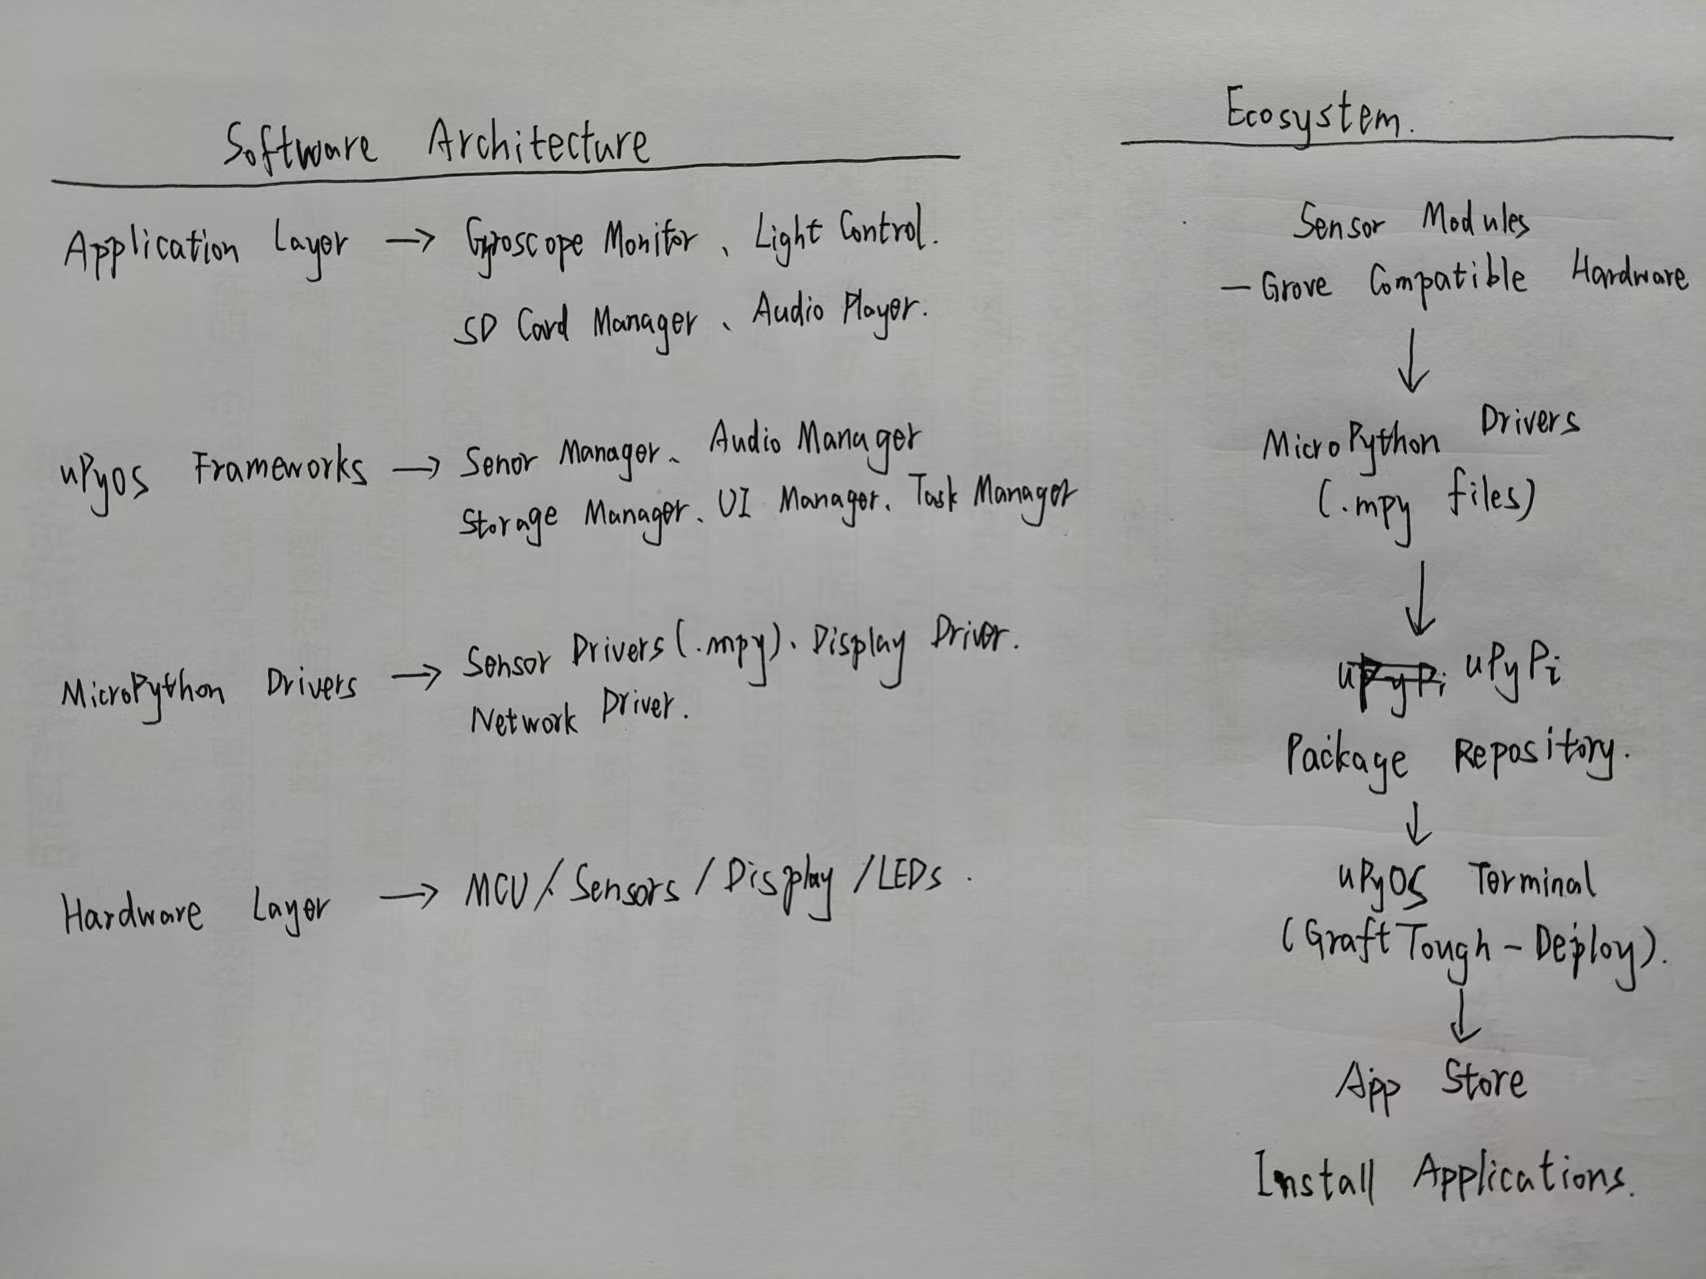 Software Architecture
Application Layer → Gyroscope Monitor、Light Control.
SD Card Manager、Audio Player.
uPyOS Frameworks → Senor Manager、Audio Manager
Storage Manager、UI Manager、Task Manager
MicroPython Drivers → Sensor Drivers(.mpy)、Display Driver.
Network Driver.
Hardware Layer → MCU/Sensors/Display/LEDs.
Ecosystem.
Sensor Modules
— Grove Compatible Hardware
↓
MicroPython Drivers
(.mpy files)
↓
uPyPi uPyPi
Package Repository.
↓
uPyOS Terminal
(GraftTough-Deploy).
↓
App Store
Install Applications.